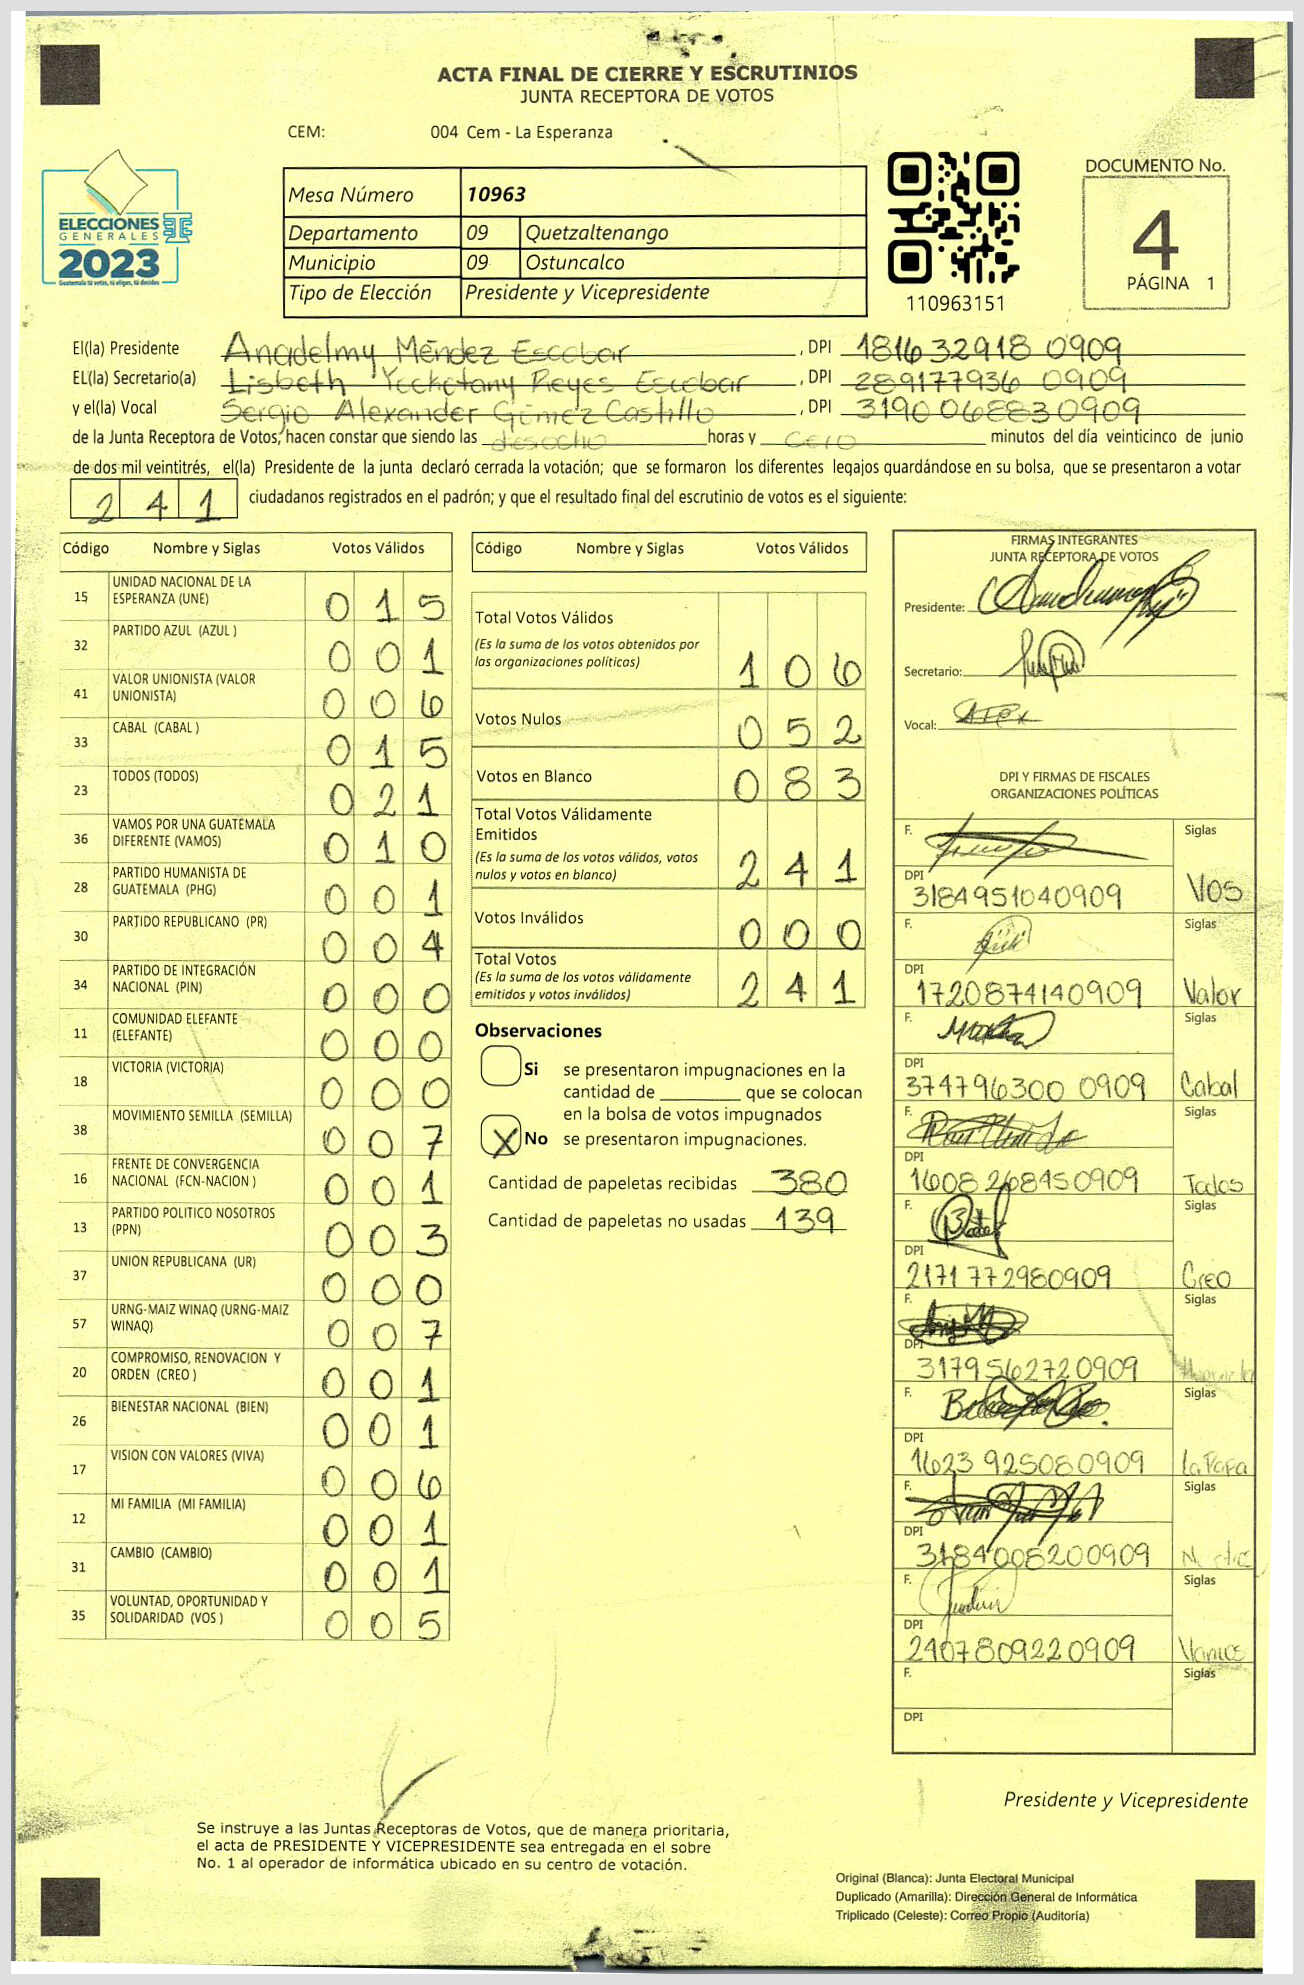 ACTA FINAL DE CIERRE Y ESCRUTINIOS
JUNTA RECEPTORA DE VOTOS
CEM: 004 Cem - La Esperanza
ELECCIONES
GENERALES
2023
Guatemala tú votas, tú eliges, tú decides
Mesa Número 10963
Departamento 09 Quetzaltenango
Municipio 09 Ostuncalco
Tipo de Elección Presidente y Vicepresidente
110963151
DOCUMENTO No.
4
PÁGINA 1
El(la) Presidente Anadelmy Méndez Escobar , DPI 181632918 0909
EL(la) Secretario(a) Lisbeth Reyes Escobar , DPI 289177936 0909
y el(la) Vocal Sergio Alexander Gómez Castillo , DPI 3190068830909
de la Junta Receptora de Votos, hacen constar que siendo las desocho horas y cero minutos del día veinticinco de junio
de dos mil veintitrés, el(la) Presidente de la junta declaró cerrada la votación; que se formaron los diferentes legajos guardándose en su bolsa, que se presentaron a votar
241 ciudadanos registrados en el padrón; y que el resultado final del escrutinio de votos es el siguiente:
Código Nombre y Siglas Votos Válidos
15 UNIDAD NACIONAL DE LA ESPERANZA (UNE) 015
32 PARTIDO AZUL (AZUL ) 001
41 VALOR UNIONISTA (VALOR UNIONISTA) 006
33 CABAL (CABAL ) 015
23 TODOS (TODOS) 021
36 VAMOS POR UNA GUATEMALA DIFERENTE (VAMOS) 010
28 PARTIDO HUMANISTA DE GUATEMALA (PHG) 001
30 PARTIDO REPUBLICANO (PR) 004
34 PARTIDO DE INTEGRACIÓN NACIONAL (PIN) 000
11 COMUNIDAD ELEFANTE (ELEFANTE) 000
18 VICTORIA (VICTORIA) 000
38 MOVIMIENTO SEMILLA (SEMILLA) 007
16 FRENTE DE CONVERGENCIA NACIONAL (FCN-NACION ) 001
13 PARTIDO POLITICO NOSOTROS (PPN) 003
37 UNION REPUBLICANA (UR) 000
57 URNG-MAIZ WINAQ (URNG-MAIZ WINAQ) 007
20 COMPROMISO, RENOVACION Y ORDEN (CREO ) 001
26 BIENESTAR NACIONAL (BIEN) 001
17 VISION CON VALORES (VIVA) 006
12 MI FAMILIA (MI FAMILIA) 001
31 CAMBIO (CAMBIO) 001
35 VOLUNTAD, OPORTUNIDAD Y SOLIDARIDAD (VOS ) 005
Código Nombre y Siglas Votos Válidos
Total Votos Válidos
(Es la suma de los votos obtenidos por
las organizaciones políticas) 106
Votos Nulos 052
Votos en Blanco 083
Total Votos Válidamente
Emitidos
(Es la suma de los votos válidos, votos
nulos y votos en blanco) 241
Votos Inválidos 000
Total Votos
(Es la suma de los votos válidamente
emitidos y votos inválidos) 241
Observaciones
Si se presentaron impugnaciones en la
cantidad de ________ que se colocan
en la bolsa de votos impugnados
X No se presentaron impugnaciones.
Cantidad de papeletas recibidas 380
Cantidad de papeletas no usadas 139
FIRMAS INTEGRANTES
JUNTA RECEPTORA DE VOTOS
Presidente:
Secretario:
Vocal:
DPI Y FIRMAS DE FISCALES
ORGANIZACIONES POLÍTICAS
F. Siglas
DPI 3184951040909 VOS
F. Siglas
DPI 1720874140909 Valor
F. Siglas
DPI 374796300 0909 Cabal
F. Siglas
DPI 1608268450909 Todos
F. Siglas
DPI 2171772980909 Creo
F. Siglas
DPI 3179562720909
F. Siglas
DPI 1623 925080909
F. Siglas
DPI 3184008200909
F. Siglas
DPI 2407809220909 Vamos
F. Siglas
DPI
Presidente y Vicepresidente
Se instruye a las Juntas Receptoras de Votos, que de manera prioritaria,
el acta de PRESIDENTE Y VICEPRESIDENTE sea entregada en el sobre
No. 1 al operador de informática ubicado en su centro de votación.
Original (Blanca): Junta Electoral Municipal
Duplicado (Amarilla): Dirección General de Informática
Triplicado (Celeste): Correo Propio (Auditoría)